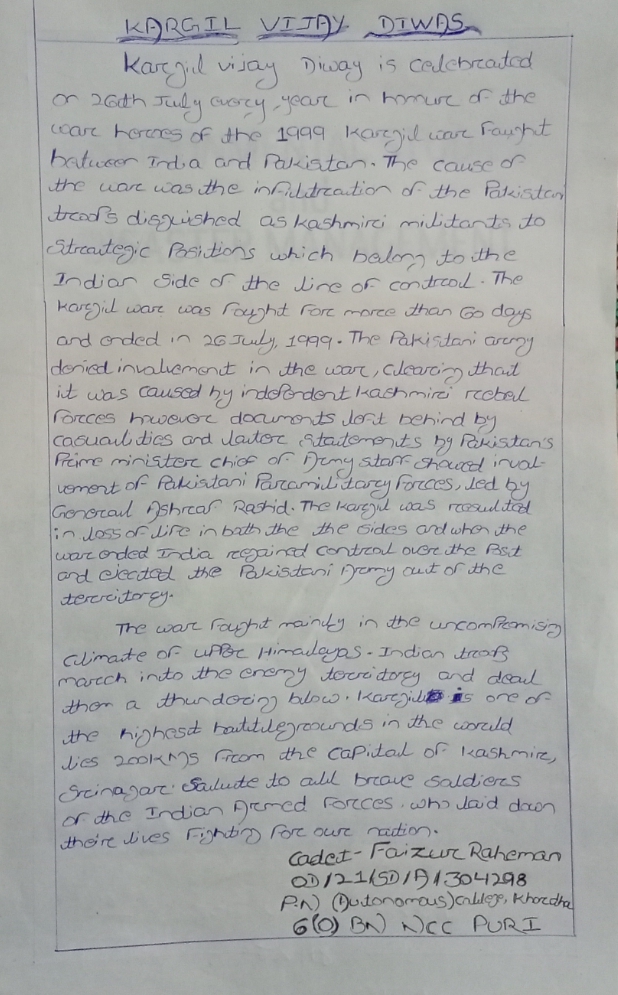 KARGIL VIJAY DIWAS
Kargil vijay Diway is celebrated
on 26th July every year in honure of the
ware heroes of the 1999 Kargil ware Fought
between India and Pakistan. The cause of
the ware was the infildtreation of the Pakistan
treoofs disguished as Kashmiri militants to
Streategic Positions which belong to the
Indian side of the line of controol. The
Kargil ware was Fought Fore more than 60 days
and ended in 26 July, 1999. The Pakistani army
denied involvement in the ware, clearing that
it was caused by independent Kashmiri reebel
Forces however documents lost behind by
casualities and later statements by Pakistan's
Prime minister chief of Army staff showed invol-
vement of Pakistani Paramilitary Forces, led by
General Ashraf Rashid. The Kargil was resulted
in loss of life in both the the sides and when the
ware ended India regained control over the Post
and ejected the Pakistani Army out of the
terrcitorcy.
The war Fought mainly in the uncompromising
climate of upper Himalayas. Indian troops
march into the enemy territorcy and deal
them a thundering blow. Kargil is one of
the highest battlegrounds in the world
lies 200KMS From the capital of Kashmir,
Srinagar. Salute to all brave saldiers
of the Indian Armed Forces. who laid down
their lives Fighting For our nation.
Cadet- Faizur Raheman
OD/21/SD/A/304298
P.N (Autonomous) college, Khordha
6(O) BN NCC PURI